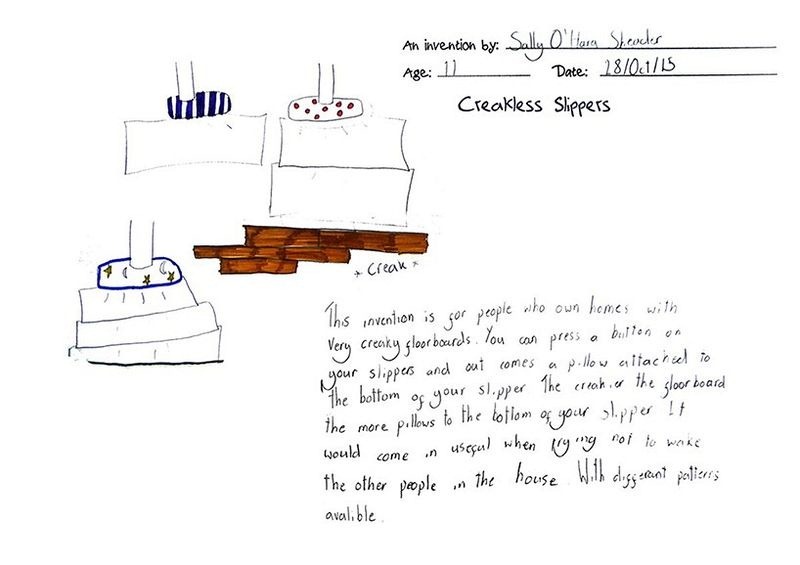 An invention by: Sally O'Hara Sheader
Age: 11 Date: 28/Oct/15
Creakless Slippers
* Creak *
This invention is for people who own homes with
very creaky floorboards. You can press a button on
your slippers and out comes a pillow attached to
the bottom of your slipper The creakier the floorboard
the more pillows to the bottom of your slipper It
would come in useful when trying not to wake
the other people in the house. With different patterns
avalible.